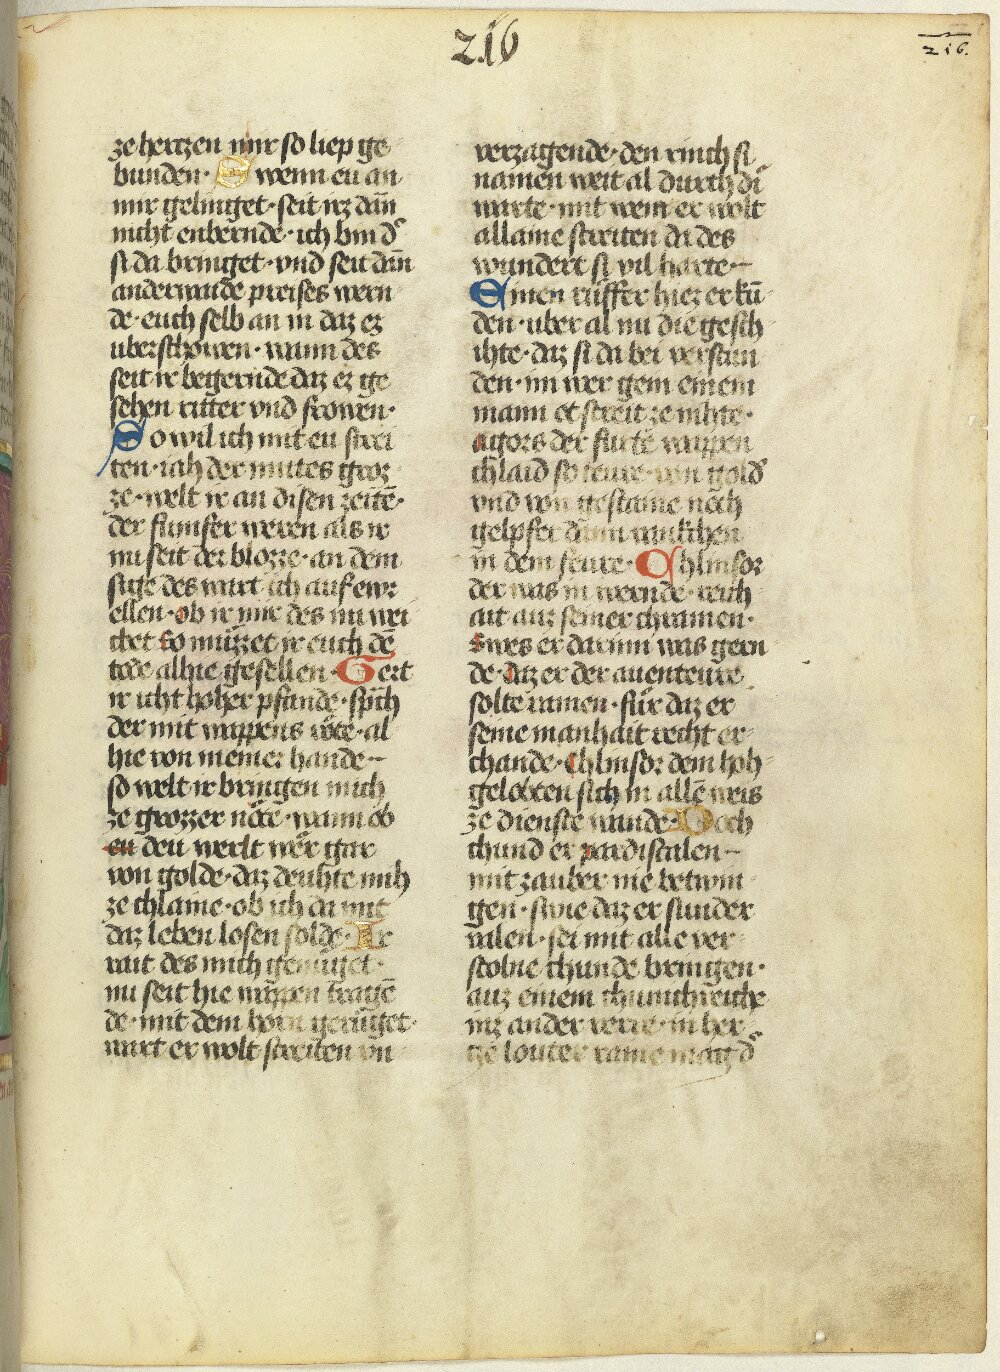 216
216.
ze hertzen mir so liep ge
bunden · Swenn eu an
mir gelinget · seit irz dān
nicht enbernde · ich bin d͛
si da bringet · vnd seit dān
anderwaide preises wern
de · euch selb an in daz ez
uberschowen · wann des
seit ir begernde daz ez ge
sehen ritter vnd frowen ·
So wil ich mit eu strei
ten · ich der mutes groz
ze · welt ir an disen zeitē ·
der fiumfer weren als ir
nu seit der blozze · an dem
sige des wart ich auf ewr
ellen · ob ir mir des nu wei
chet so müzzet ir euch dē
tode alhie gesellen · Gert
ir icht hoher pfande · sp̄ch
der mit wappens röte · al
hie von meiner hande –
so welt ir bringen mich
ze grozzer nöte · wann ob
eu deu werlt wër gar
von golde · daz deuhte mih
ze chlaine · ob ich da mit
daz leben losen solde · Ir
rait des mich genüget ·
nu seit hie wappen tragē
de · mit dem horn gerüget ·
wart er wolt streiten vn̄
verzagende · den rinch si
namen weit al durch di
warte · mit wem er wolt
allaine streiten da des
wundert si vil harte –
Einen rüffer hiez er kū
den · uber al nu die gesch
ihte · daz si da bei verstun
den · im wer gem einem
mann et streit ze nihte ·
aigors der furte wappen
chlaid so teure · von gold͛
vnd von gestaine noch
gelpfer dann wurchen
in dem feure · Chlinsor
der was in wernde · reich
ait auz seiner chramen ·
swes er darinn was gern
de · daz er der auenteure
solte ramen · für daz er
seine manhait recht er
chande · Chlinsor dem hoh
gelobten sich in allē weis
ze dienste wande · Doch
chund er pardiscalen –
mit zauber nie betwin
gen · swie daz er sunder
valen · sei mit alle ver
stolne chunde bringen ·
auz einem chunichreiche
inz ander verre · in her
tze louter raine mag d͛